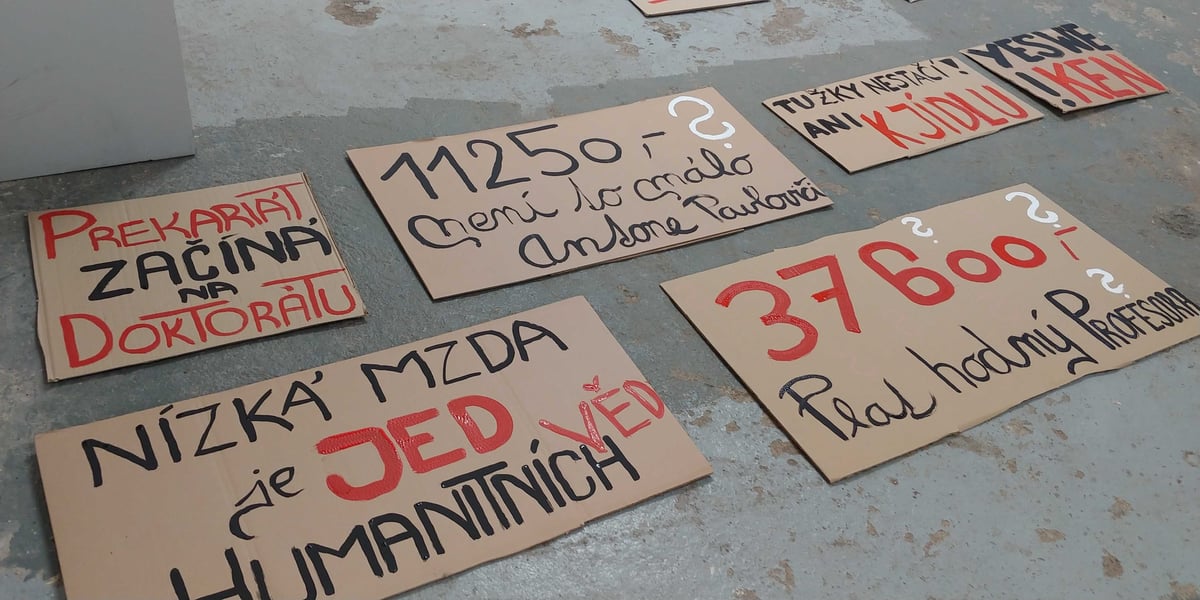 PREKARIÁT
ZAČÍNÁ
NA
DOKTORÁTU
11250,- ?
není to málo
Antone Pavlovči
TUŽKY NESTAČÍ!
ANI K JÍDLU!
YES WE
KEN
37600,- ???
Plat hodný PROFESORA
NÍZKÁ MZDA
je JED VĚD
HUMANITNÍCH